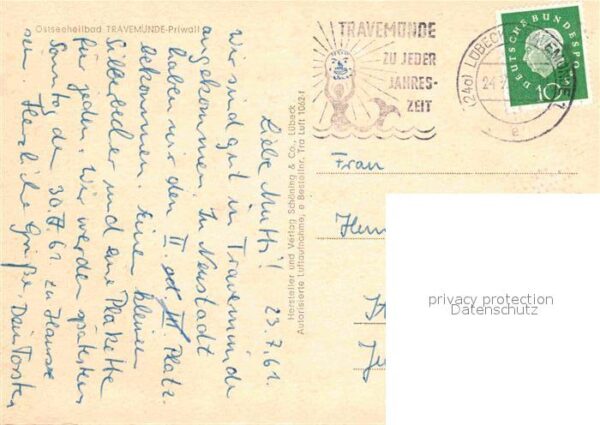 Ostseeheilbad TRAVEMÜNDE-Priwall
23.7.61.
Liebe Mutti!
Wir sind gut in Travemünde
angekommen. In Neustadt
haben wir den II. Platz
bekommen. Einen kleinen
Silberbecher und eine Plakette
für jeden. Wir werden spätestens
Sonntag den 30.7.61 zu Hause
sein. Herzliche Grüße, Dein Torsten
Hersteller und Verlag Schöning & Co., Lübeck
Autorisierte Luftaufnahme, e Bestellnr. Tra Luft 1062 f
TRAVEMÜNDE
ZU JEDER
JAHRES-
ZEIT
(24a) LÜBECK-TRAVEMÜNDE
24.
e
DEUTSCHE BUNDESPOST
10
Frau
privacy protection
Datenschutz